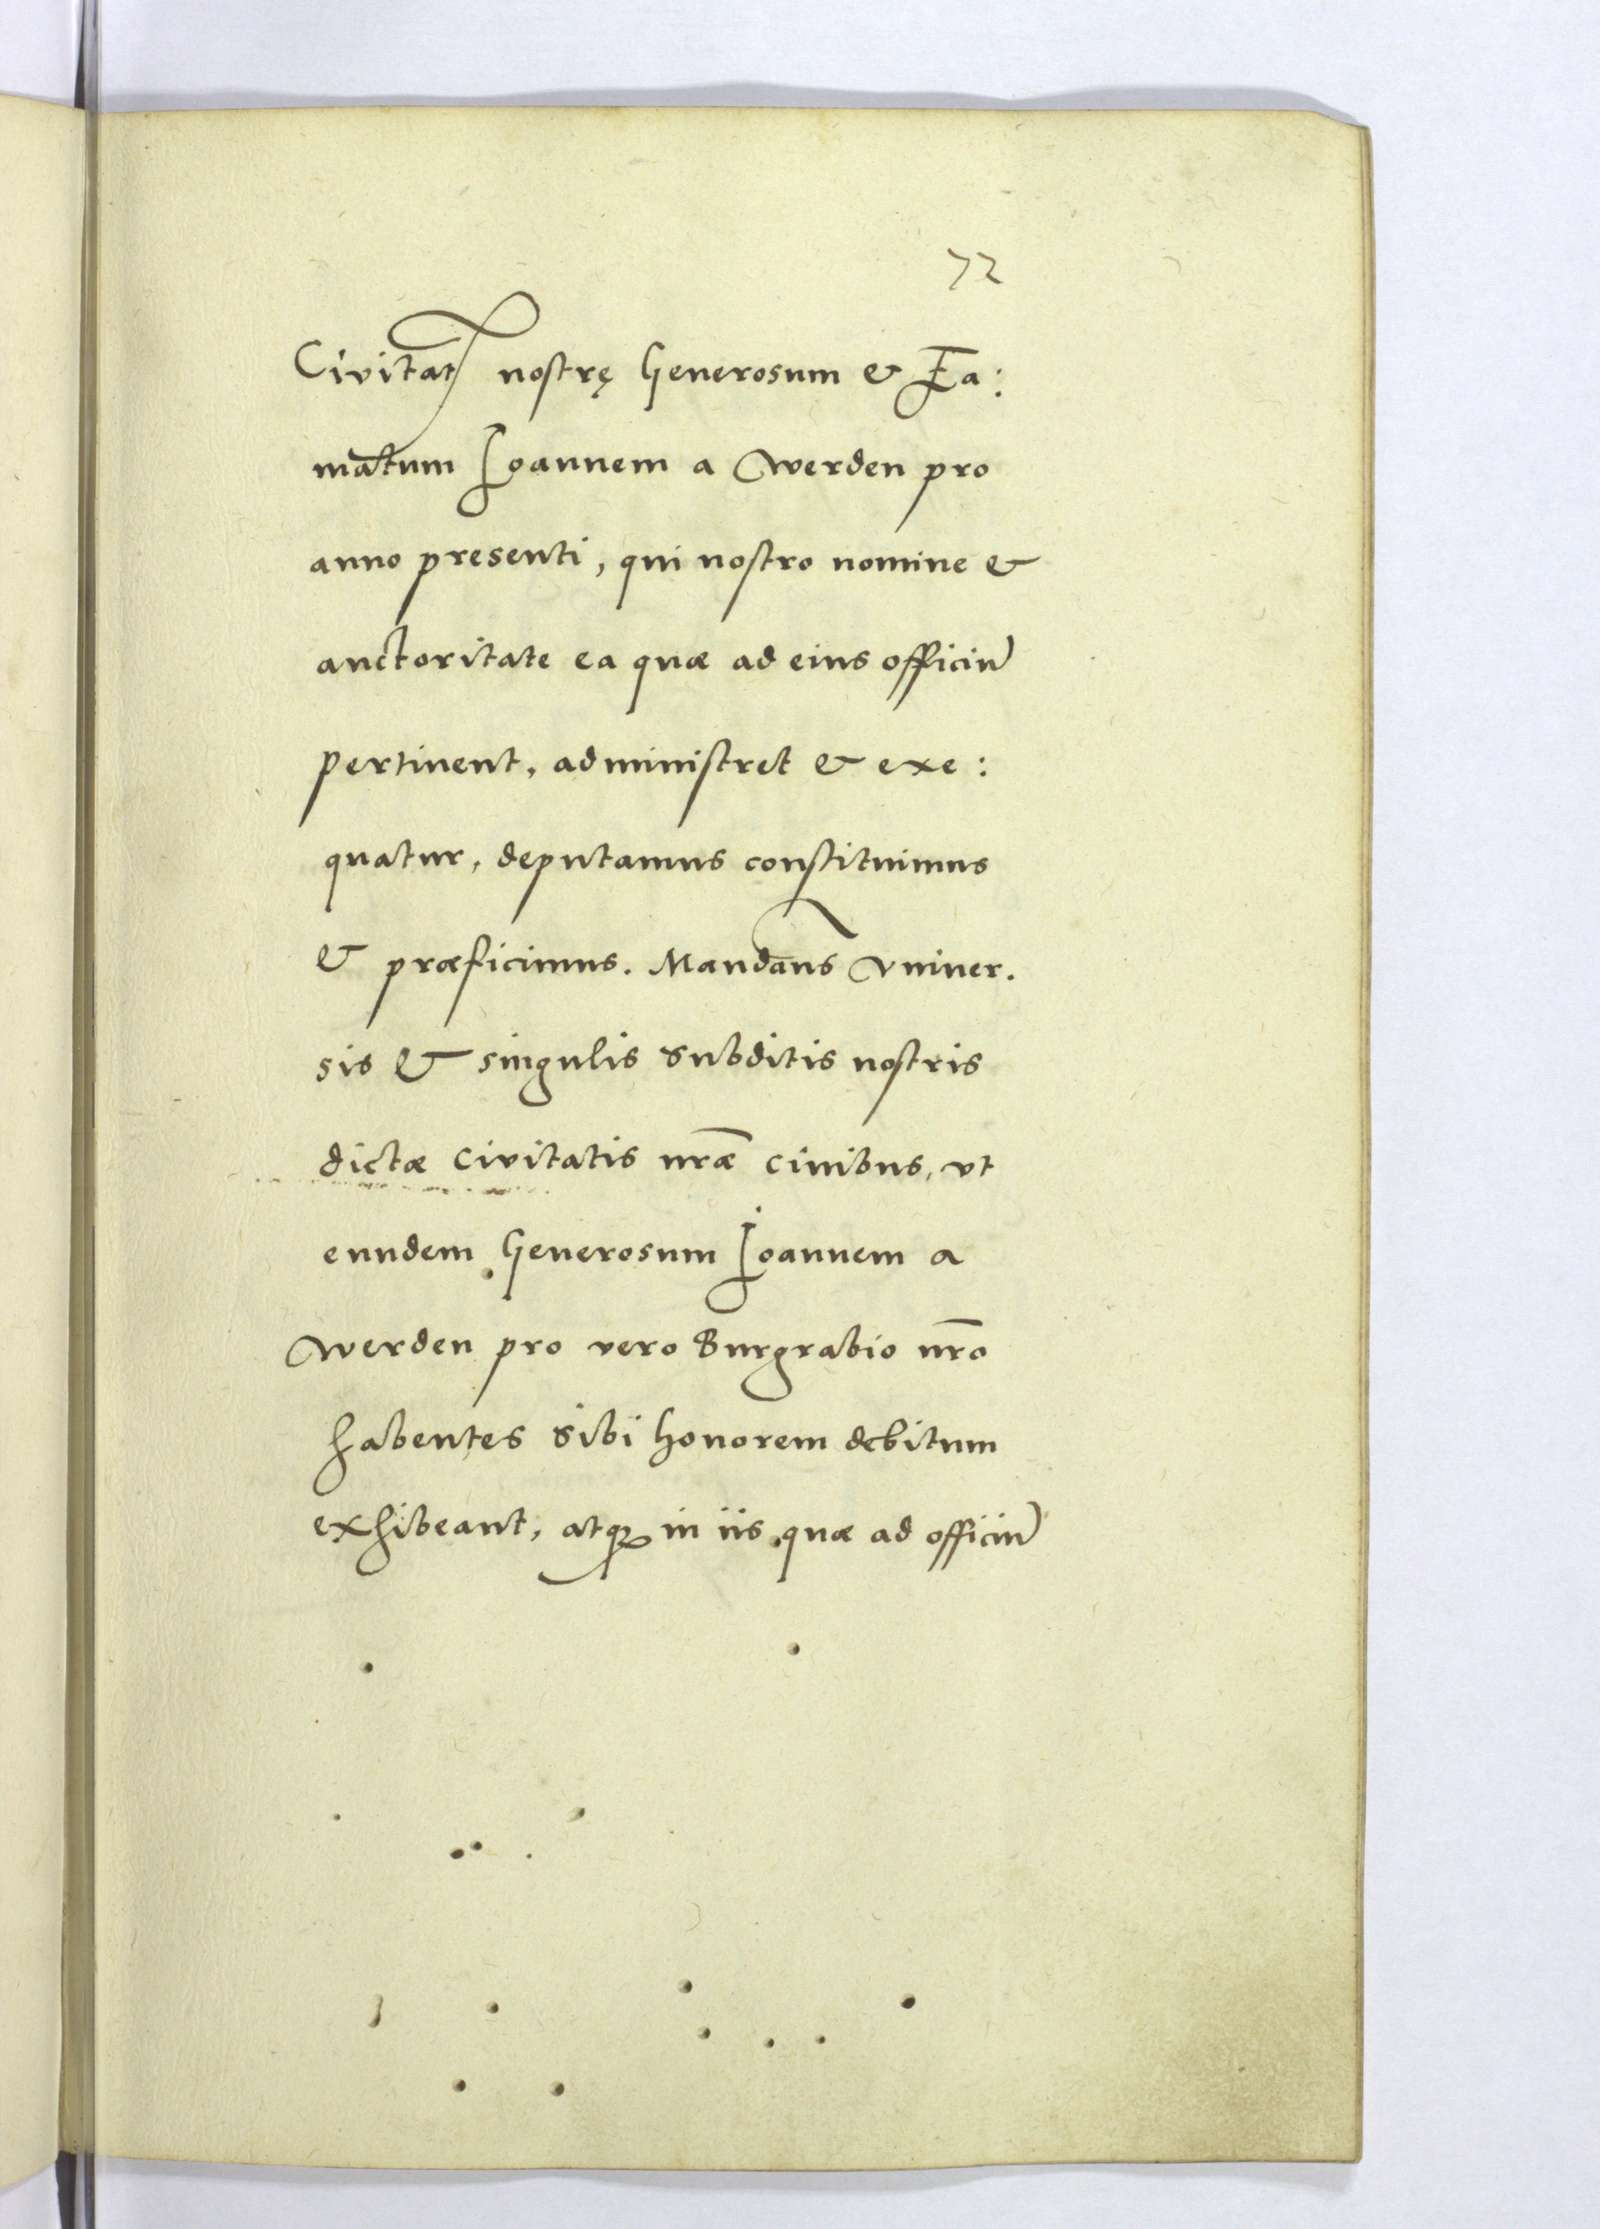 72
Civitat̃ nostrę Generosum & Fa:
matum Ioannem a Werden pro
anno presenti, qui nostro nomine &
auctoritate ea quæ ad eius officiũ
pertinent, administret & exe:
quatur, deputamus constituimus
& præficimus. Mandañs vniver.
sis & singulis subditis nostris
dictæ Civitatis nr̃æ civibus, vt
eundem Generosum Ioannem a
Werden pro vero Burgrabio nr̃o
habentes sibi honorem debitum
exhibeant, atqꝫ in iis quæ ad officiũ